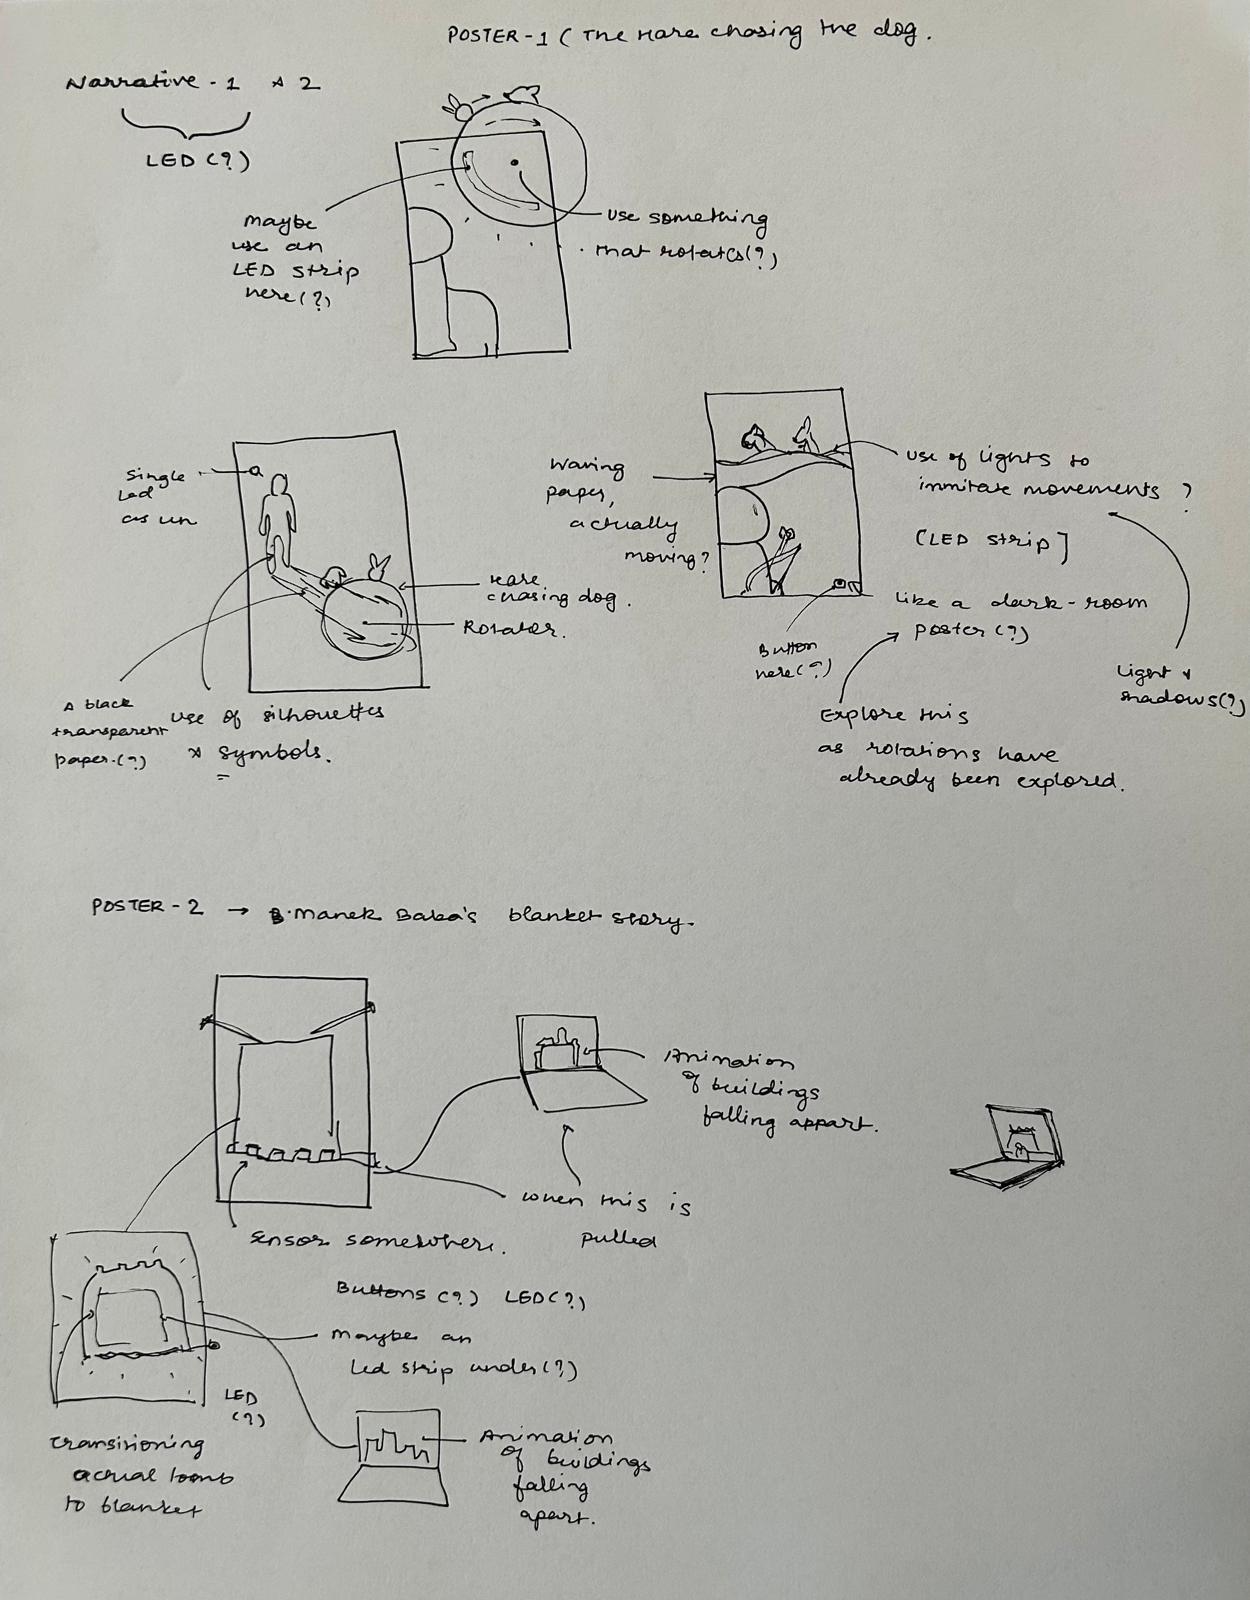 POSTER-1 ( The Hare chasing the dog.
Narrative - 1 & 2
LED (?)
maybe
use an
LED strip
here(?)
use something
that rotates(?)
single
led
as
hare
chasing dog.
Rotator.
A black
transparent
paper.(?)
use of silhouettes
& symbols.
Waving
paper,
actually
moving?
use of lights to
immitate movements ?
[LED strip]
Like a dark-room
poster(?)
Button
here(?)
Light &
shadows(?)
Explore this
as rotations have
already been explored.
POSTER - 2 → Manek Baba's blanket story.
Animation
of buildings
falling appart.
when this is
pulled
sensor somewhere.
Buttons (?) LED(?)
Maybe an
led strip under(?)
LED
(?)
Transitioning
actual
to blanket
Animation
of buildings
falling
apart.